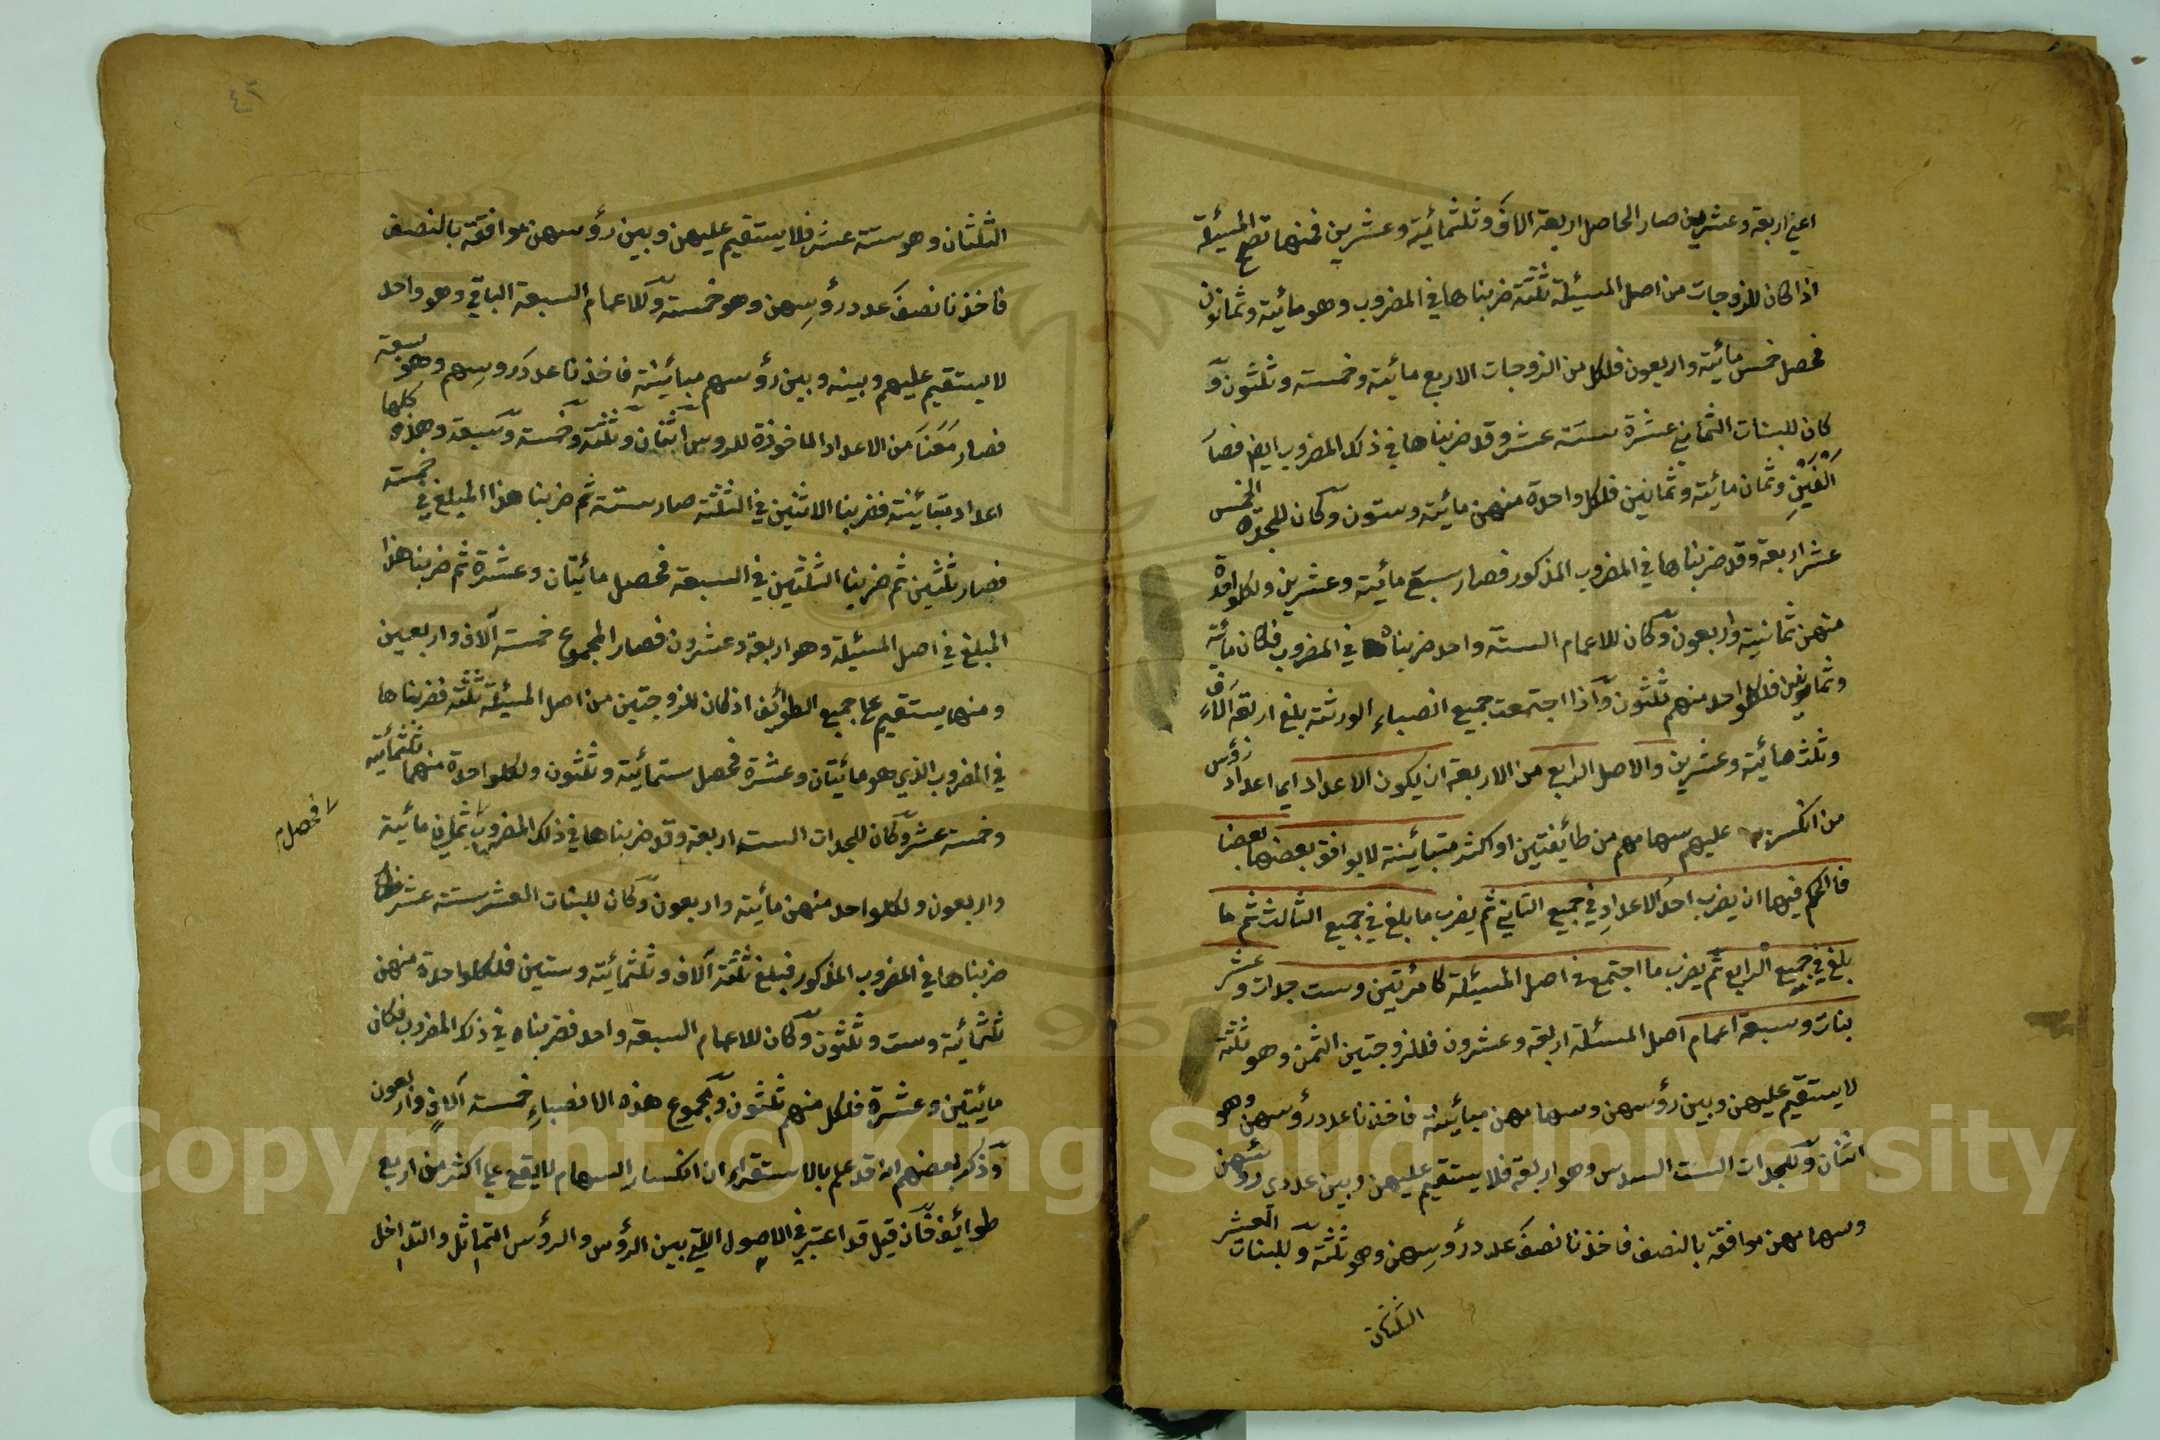 اعني اربعة وعشرين صار الحاصل اربعة الاف وثلثمائية وعشرين فمنها تصح المسئلة
اذا كان للزوجات من اصل المسئلة ثلثة ضربناها في المضروب وهو مائية وثمانون
فحصل خمس مائية واربعون فلكل من الزوجات الاربع مائية وخمسة وثلثون و
كان للبنات الثماني عشرة ستة عشر وقد ضربناها في ذلك المضروب ايض فصار
الفين وثمان مائية وثمانين فلكل واحدة منهن مائية وستون وكان للجدة الخمس
عشر اربعة وقد ضربناها في المضروب المذكور فصار سبع مائية وعشرين ولكل واحدة
منهن ثمانية واربعون وكان للاعمام الستة واحد ضربناه في المضروب فكان مائية
وثمانين فلكل واحد منهم ثلثون واذا اجتمعت جميع انصباء الورثة بلغ اربعة آلاف
وثلث مائية وعشرين والاصل الرابع من الاربعة ان يكون الاعداد ايها اعداد رؤس
من انكسر عليهم سهامهم من طايفتين او اكثر متباينة لا يوافق بعضها بعضا
فالحكم فيها ان يضرب احد الاعداد في جميع الثاني ثم يضرب ما بلغ في جميع الثالث ثم ما
بلغ في جميع الرابع ثم يضرب ما اجتمع في اصل المسئلة كامرئتين وست جدات وعشر
بنات وسبعة اعمام اصل المسئلة اربعة وعشرون فللزوجتين الثمن وهو ثلثة
لا يستقيم عليهن وبين رؤسهن وسهامهن مباينة فاخذنا عدد رؤسهن وهو
اثنان وللجدات الست السدس وهو اربعة فلا يستقيم عليهن وبين عدد رؤسهن
وسهامهن موافقة بالنصف فاخذنا نصف عدد رؤسهن وهو ثلثة وللبنات العشر
الثلثان
الثلثان وهو ستة عشر فلا يستقيم عليهن وبين رؤسهن موافقة بالنصف
فاخذنا نصف عدد رؤسهن وهو خمسة وللاعمام السبعة الباقي وهو واحد
لا يستقيم عليهم وبينه وبين رؤسهم مباينة فاخذنا عدد رؤسهم وهو سبعة
فصار معنا من الاعداد الماخوذة للرؤس اثنان وثلثة وخمسة وسبعة وهذه كلها
اعداد متباينة فضربنا الاثنين في الثلثة صار ستة ثم ضربنا هذا المبلغ في خمسة
فصار ثلثين ثم ضربنا الثلثين في السبعة فحصل مائيتان وعشرة ثم ضربنا هذا
المبلغ في اصل المسئلة وهو اربعة وعشرون فصار المجموع خمسة آلاف واربعين
ومنها يستقيم على جميع الطوائف اذ كان للزوجتين من اصل المسئلة ثلثة فضربناها
في المضروب الذي هو مائيتان وعشرة فحصل ستمائية وثلثون ولكل واحدة منهما ثلثمائية
وخمسة عشر وكان للجدات الست اربعة وقد ضربناها في ذلك المضروب ثماني مائية
فحصل
واربعون ولكل واحد منهن مائية واربعون وكان للبنات العشر ستة عشر
ضربناها في المضروب المذكور فبلغ ثلثة آلاف وثلثمائية وستين فلكل واحدة منهن
ثلثمائية وست وثلثون وكان للاعمام السبعة واحد فضربناه في ذلك المضروب فكان
مائيتين وعشرة فلكل منهم ثلثون ومجموع هذه الانصباء خمسة آلاف واربعون
وذكر بعضهم انه قد علم بالاستقراء ان انكسار السهام لا يقع على اكثر من اربع
طوائف فان قيل قد اعتبر في الاصول التي بين الرؤس والرؤس التماثل والتداخل